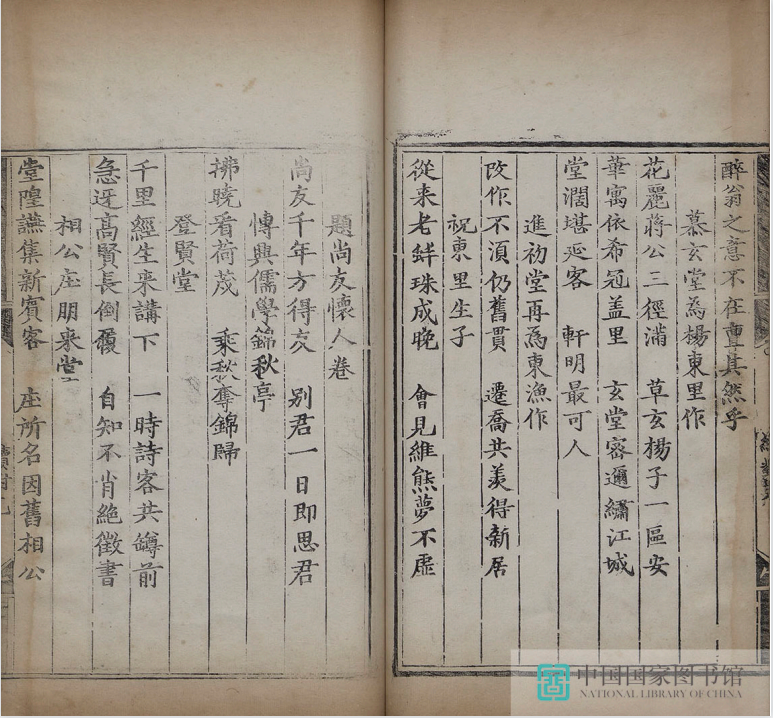 醉翁之意不在亶其然乎
慕玄堂為楊東里作
花麗蔣公三徑滿 草玄楊子一區安
華寓依希冠盖里 玄堂宻邇繡江城
堂濶堪延客 軒明最可人
進初堂再為東漁作
改作不湏仍舊貫 遷喬共羡得新居
祝東里生子
從来老蚌珠成晚 會見維熊夢不虚
題尚友懷人卷
尚友千年方得友 别君一日即思君
慱興儒學錦秋亭
拂曉看荷茂 乘秋奪錦歸
登賢堂
千里經生来講下 一時詩客共罇前
急迓髙賢長倒屐 自知不肖絶徵書
相公座朋来堂
堂隍讌集新賓客 座所名因舊相公
中国国家图书馆
NATIONAL LIBRARY OF CHINA